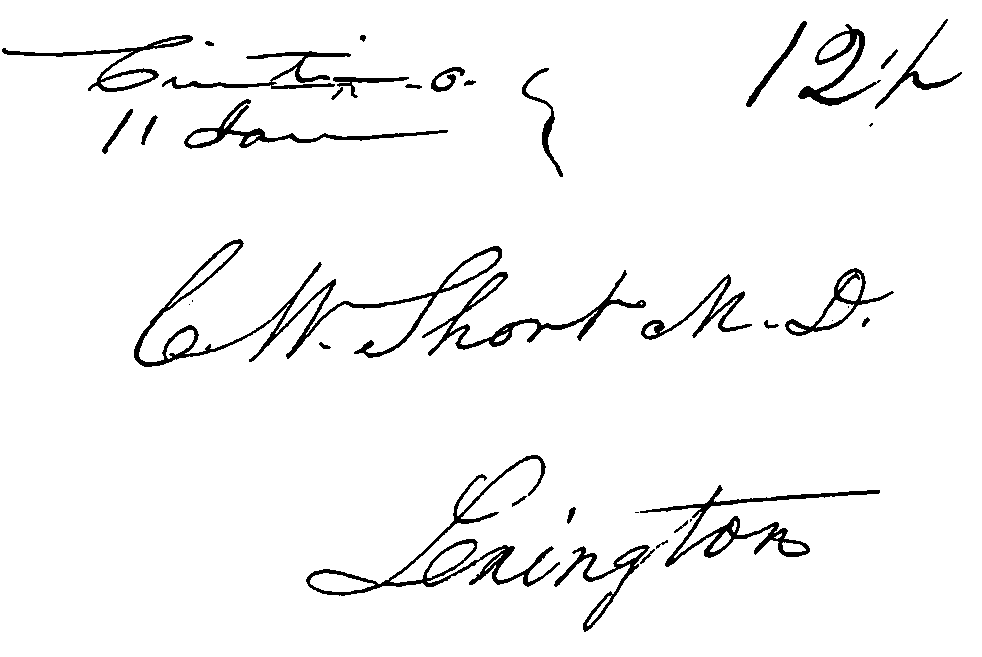 Cinti - O. 12½
11 Jan
C. W. Short M. D.
Lexington